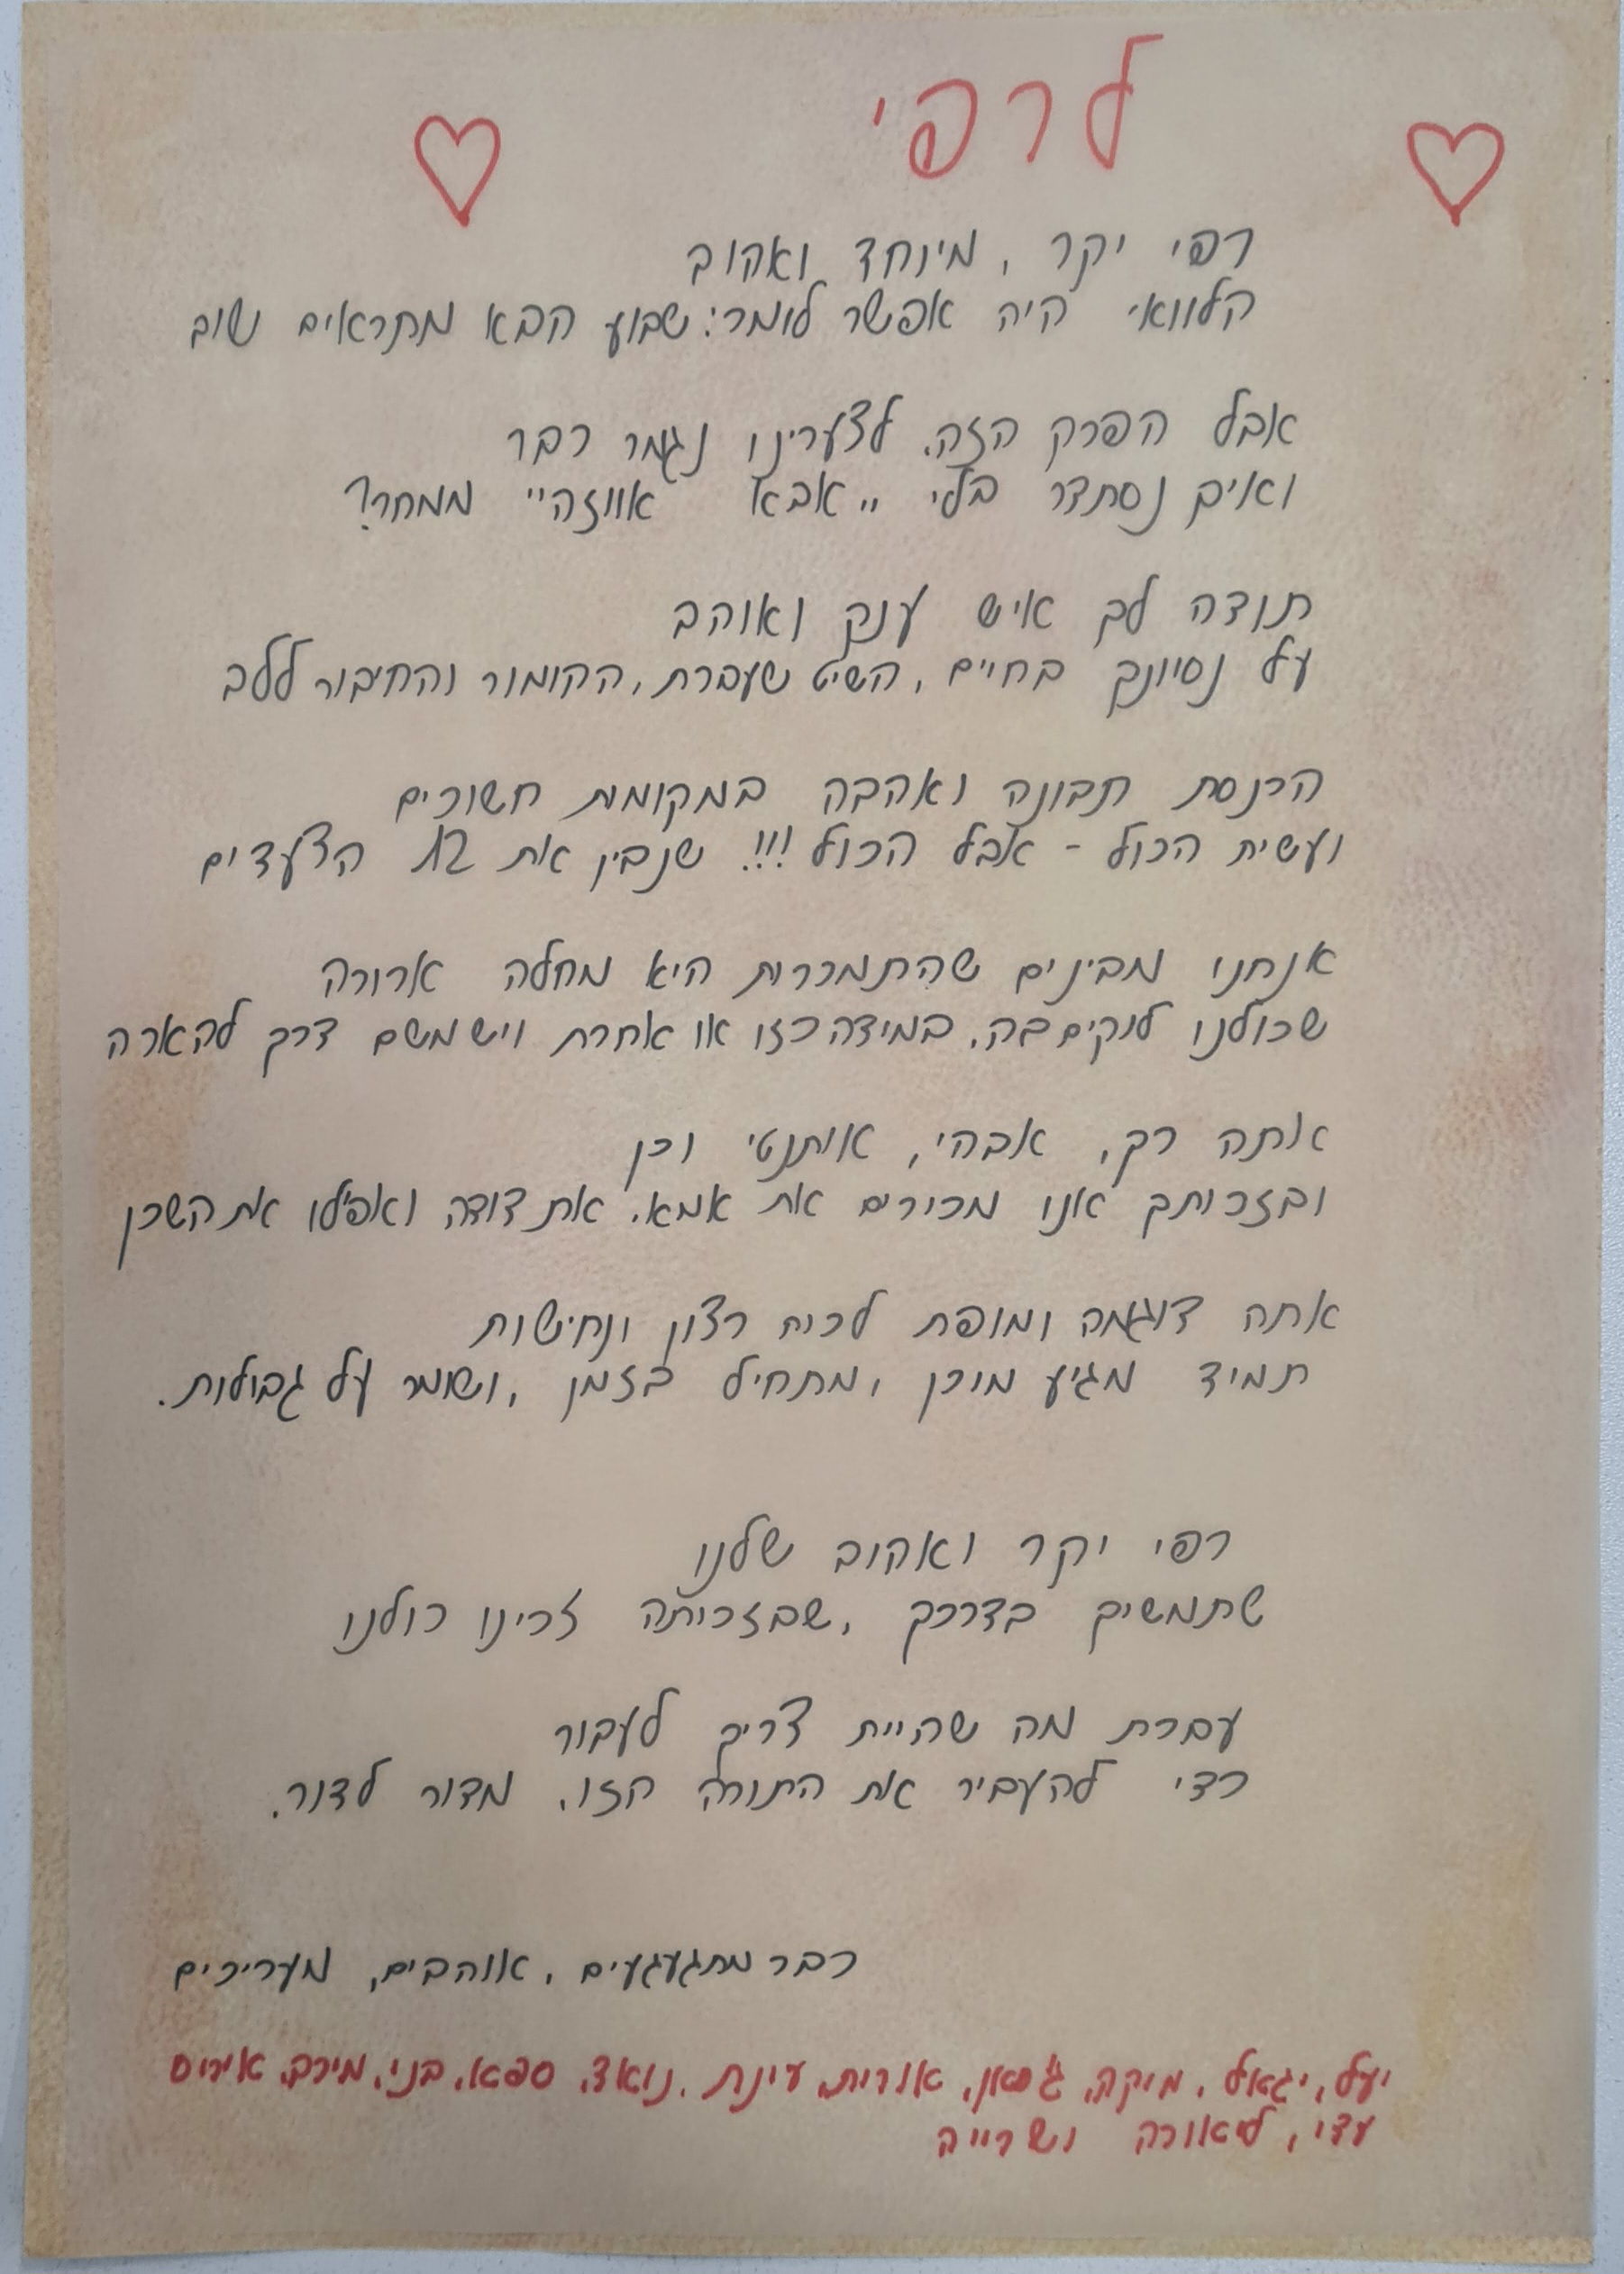 לרפי
רפי יקר, מיוחד ואהוב
הלוואי היה אפשר לומר: שבוע הבא מתראים שוב
אבל הפרק הזה, לצערינו נגמר כבר
ואיך נסתדר בלי "אבא אווזה" ממחר?
תודה לך איש ענק ואוהב
על נסיונך בחיים, השיט שעברת, ההומור והחיבור ללב
הכנסת תבונה ואהבה במקומות חשוכים
ועשית הכול - אבל הכול!!! שנבין את 12 הצעדים
אנחנו מבינים שהתמכרות היא מחלה ארורה
שכולנו לוקים בה, במידה כזו או אחרת ויש משם דרך להארה
אתה רך, אבהי, אותנטי וכן
ובזכותך אנו מכירים את אמא, את דודה ואפילו את השכן
אתה דוגמה ומופת לכוח רצון ונחישות
תמיד מגיע מוכן, מתחיל בזמן, ושומר על גבולות.
רפי יקר ואהוב שלנו
שתמשיך בדרכך, שבזכותה זכינו כולנו
עברת מה שהיית צריך לעבור
כדי להעביר את התורה הזו, מדור לדור.
כבר מתגעגעים, אוהבים, מעריכים
יעל, יגאל, מיקה, ג'סאן, אורית, עינת, נואד, ספא, בני, מירב, איריס
עדי, ליאורה ושרייה